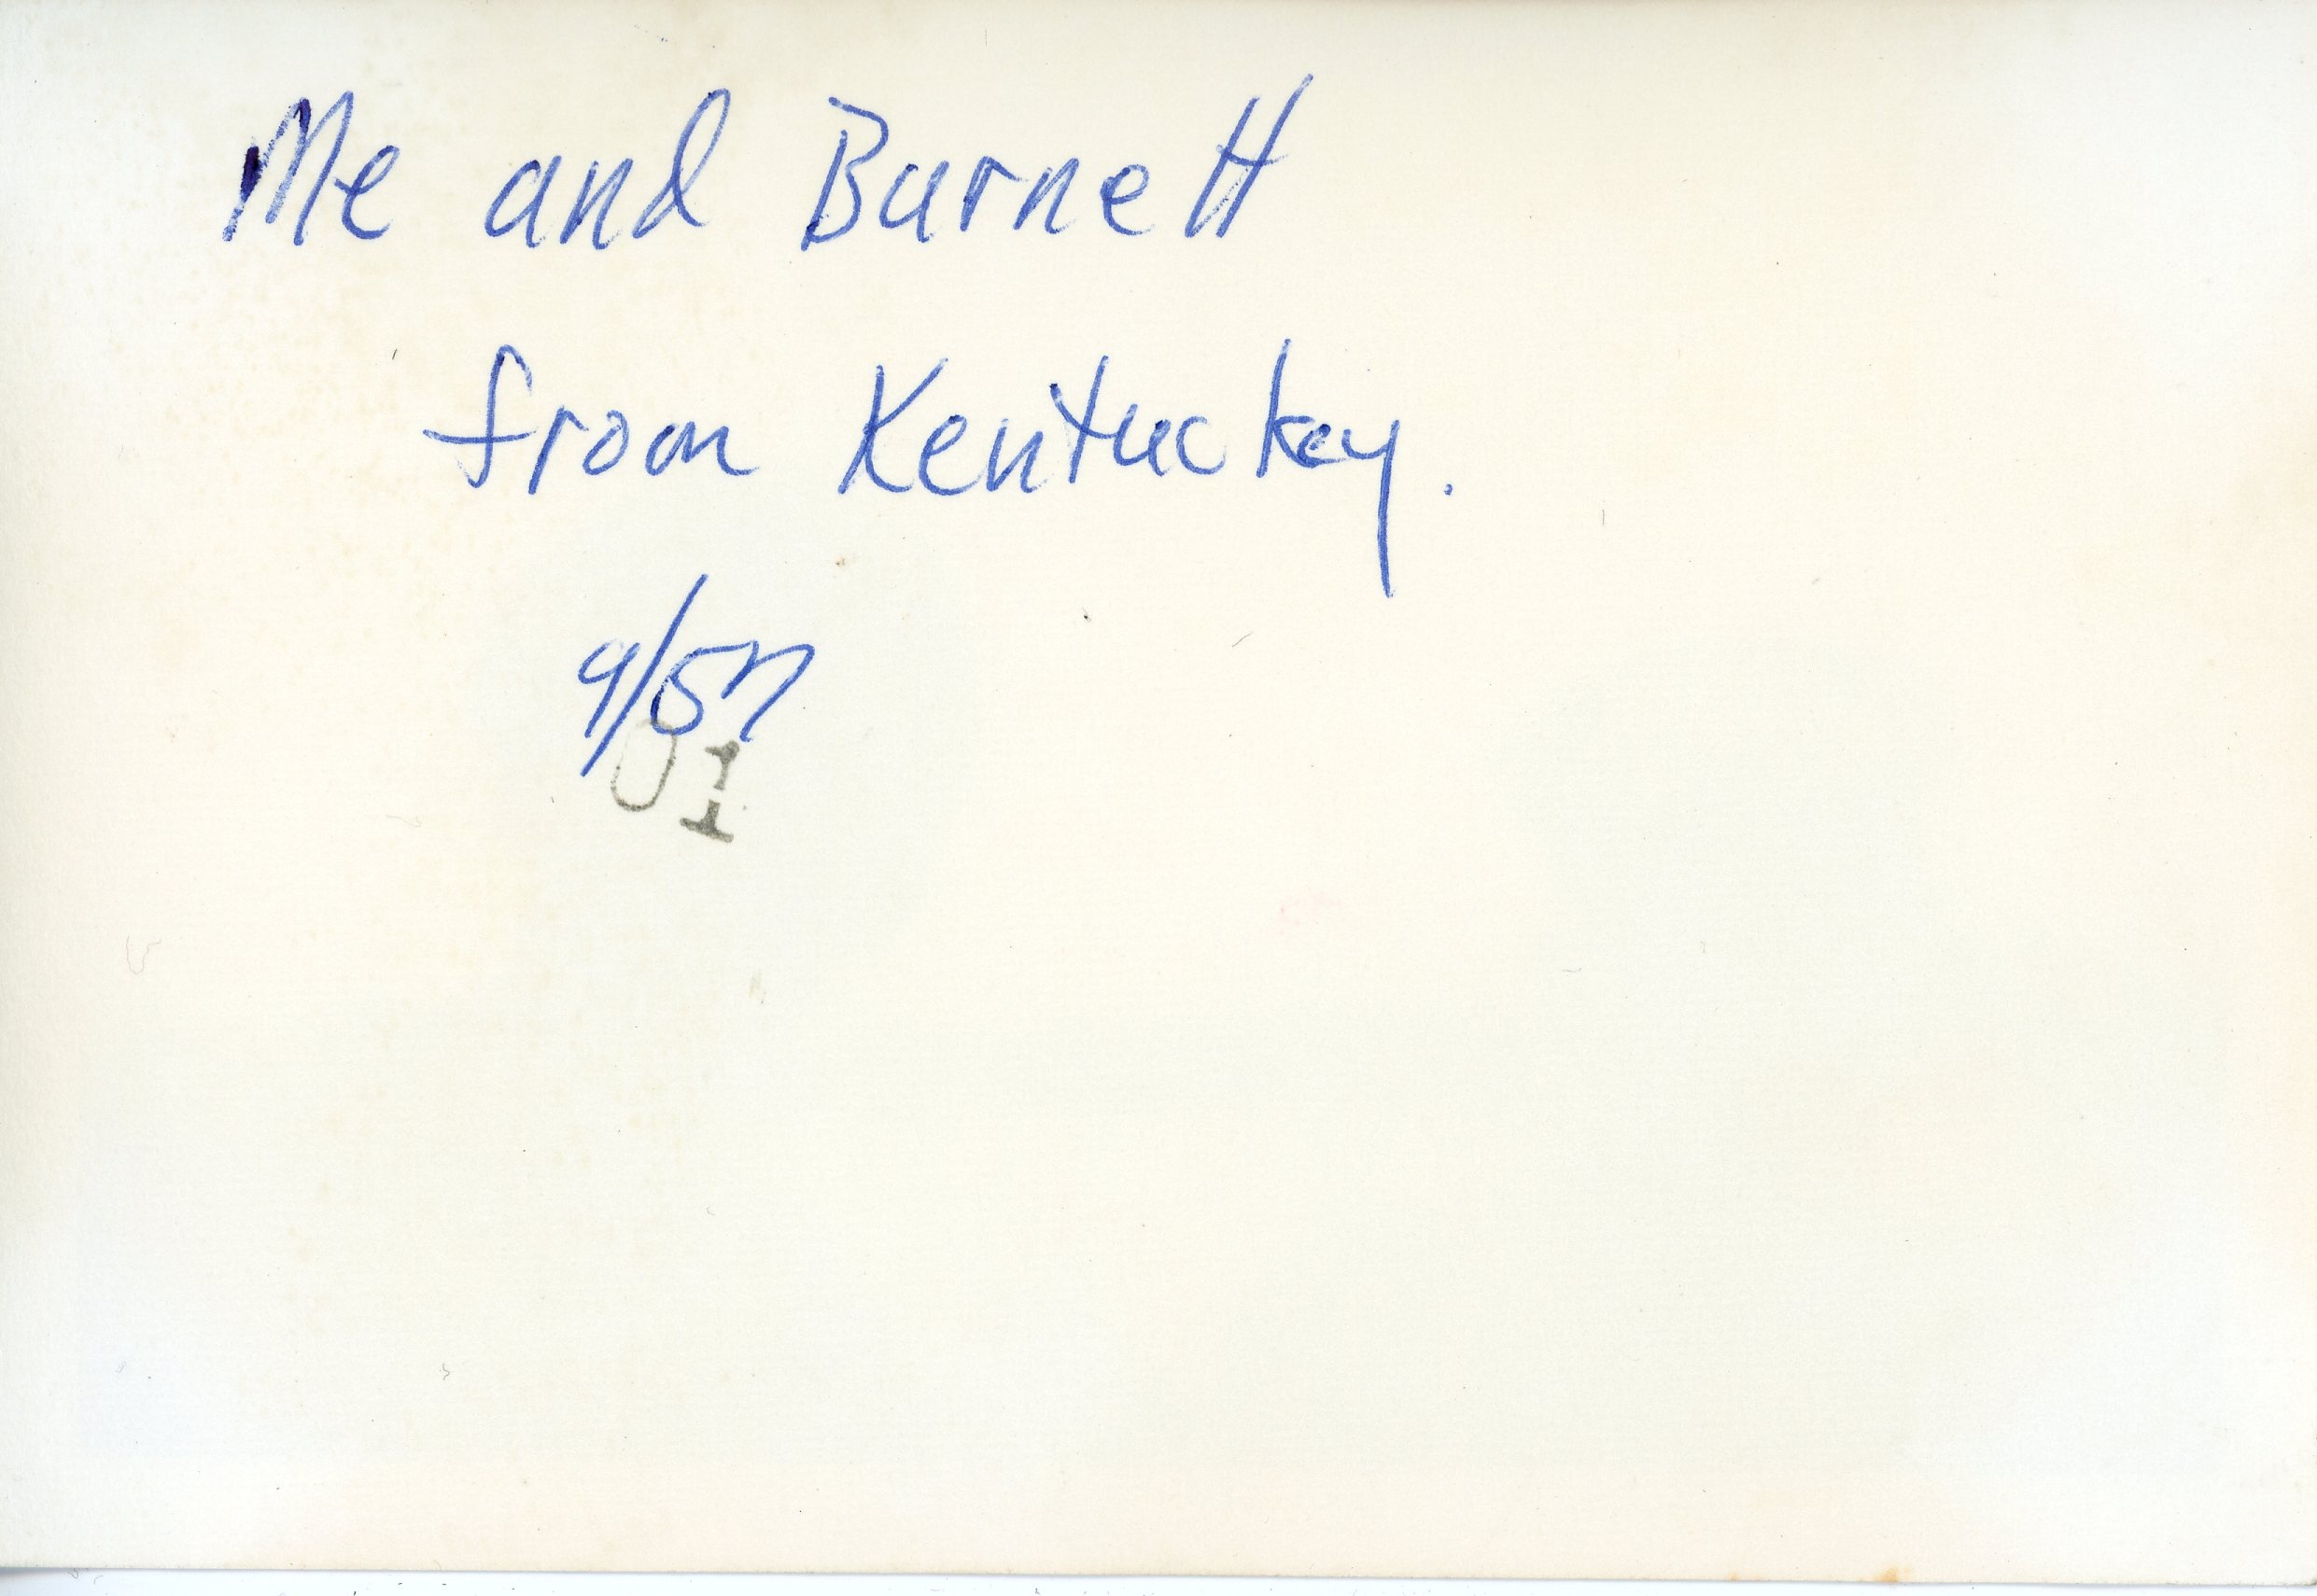 Me and Burnett
from Kentucky.
9/57
01